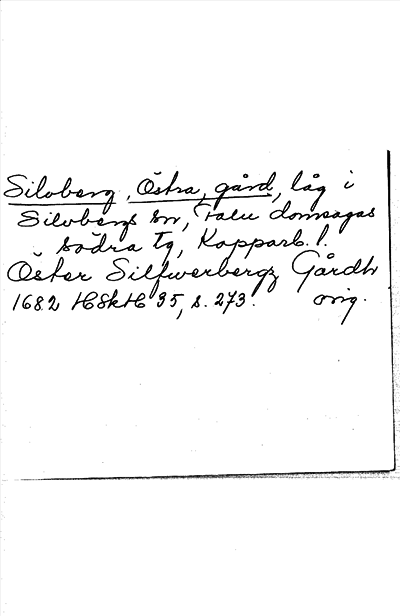 Silvberg, Östra, gård, låg i
Silvbergs sn, Falu domsagas
södra tg, Kopparb. l.
Öster Silfwerbergz Gårdh
1682 HSkH 35, s. 273. orig.